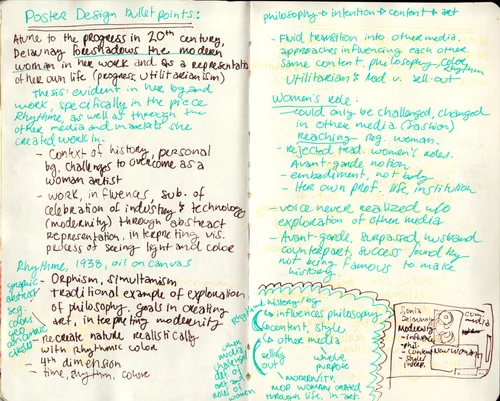 Poster Design bullet points:
Atune to the progress in 20th century,
Delaunay foreshadows the modern
woman in her work and as a representation
of her own life (progress, utilitarianism)
Thesis: evident in her bg. and
work, specifically in the piece
Rhythme, as well as through the
other media and materials she
created work in.
- Context of history, personal
bg. challenges to overcome as a
woman artist
- work, influences, sub. of
celebration of industry & technology
(modernity) through abstract
representation, interpreting vis.
process of seeing light and color
Rhythme, 1938, oil on canvas
- Orphism, simultanism
Traditional example of exploration
of philosophy. goals in creating
art, interpreting modernity
- recreate nature realistically
with rhythmic color
- 4th dimension
- time, rhythm, colour
graphic
abstract
seg.
colors
geo
concentric
circles
philosophy → intention → content → art
- Fluid transition into other media.
approaches influencing each other.
Same content, philosophy, color,
rhythm
Utilitarian & Mod v. sell-out
Women's role:
- could only be challenged, changed
in other media (fashion)
reaching reg. woman.
- rejected trad. women's roles.
Avant-garde notion
- embodiment, not body
- Her own prof. life, institution
- voice never realized w/o
exploration of other media
- Avant-garde, surpassed husband
counterpart, success found by
not being famous to make
history.
history/bg
influences philosophy
content, style
other media
selling
out
whole
purpose
MODERNITY,
MOD WOMAN CREATED
through life, in art.
other
media
challenge
def. of
art and
role of
women
Sonia
Delaunay
Modernity
- influence
- Phil.
- Content
- Style
media
New Woman